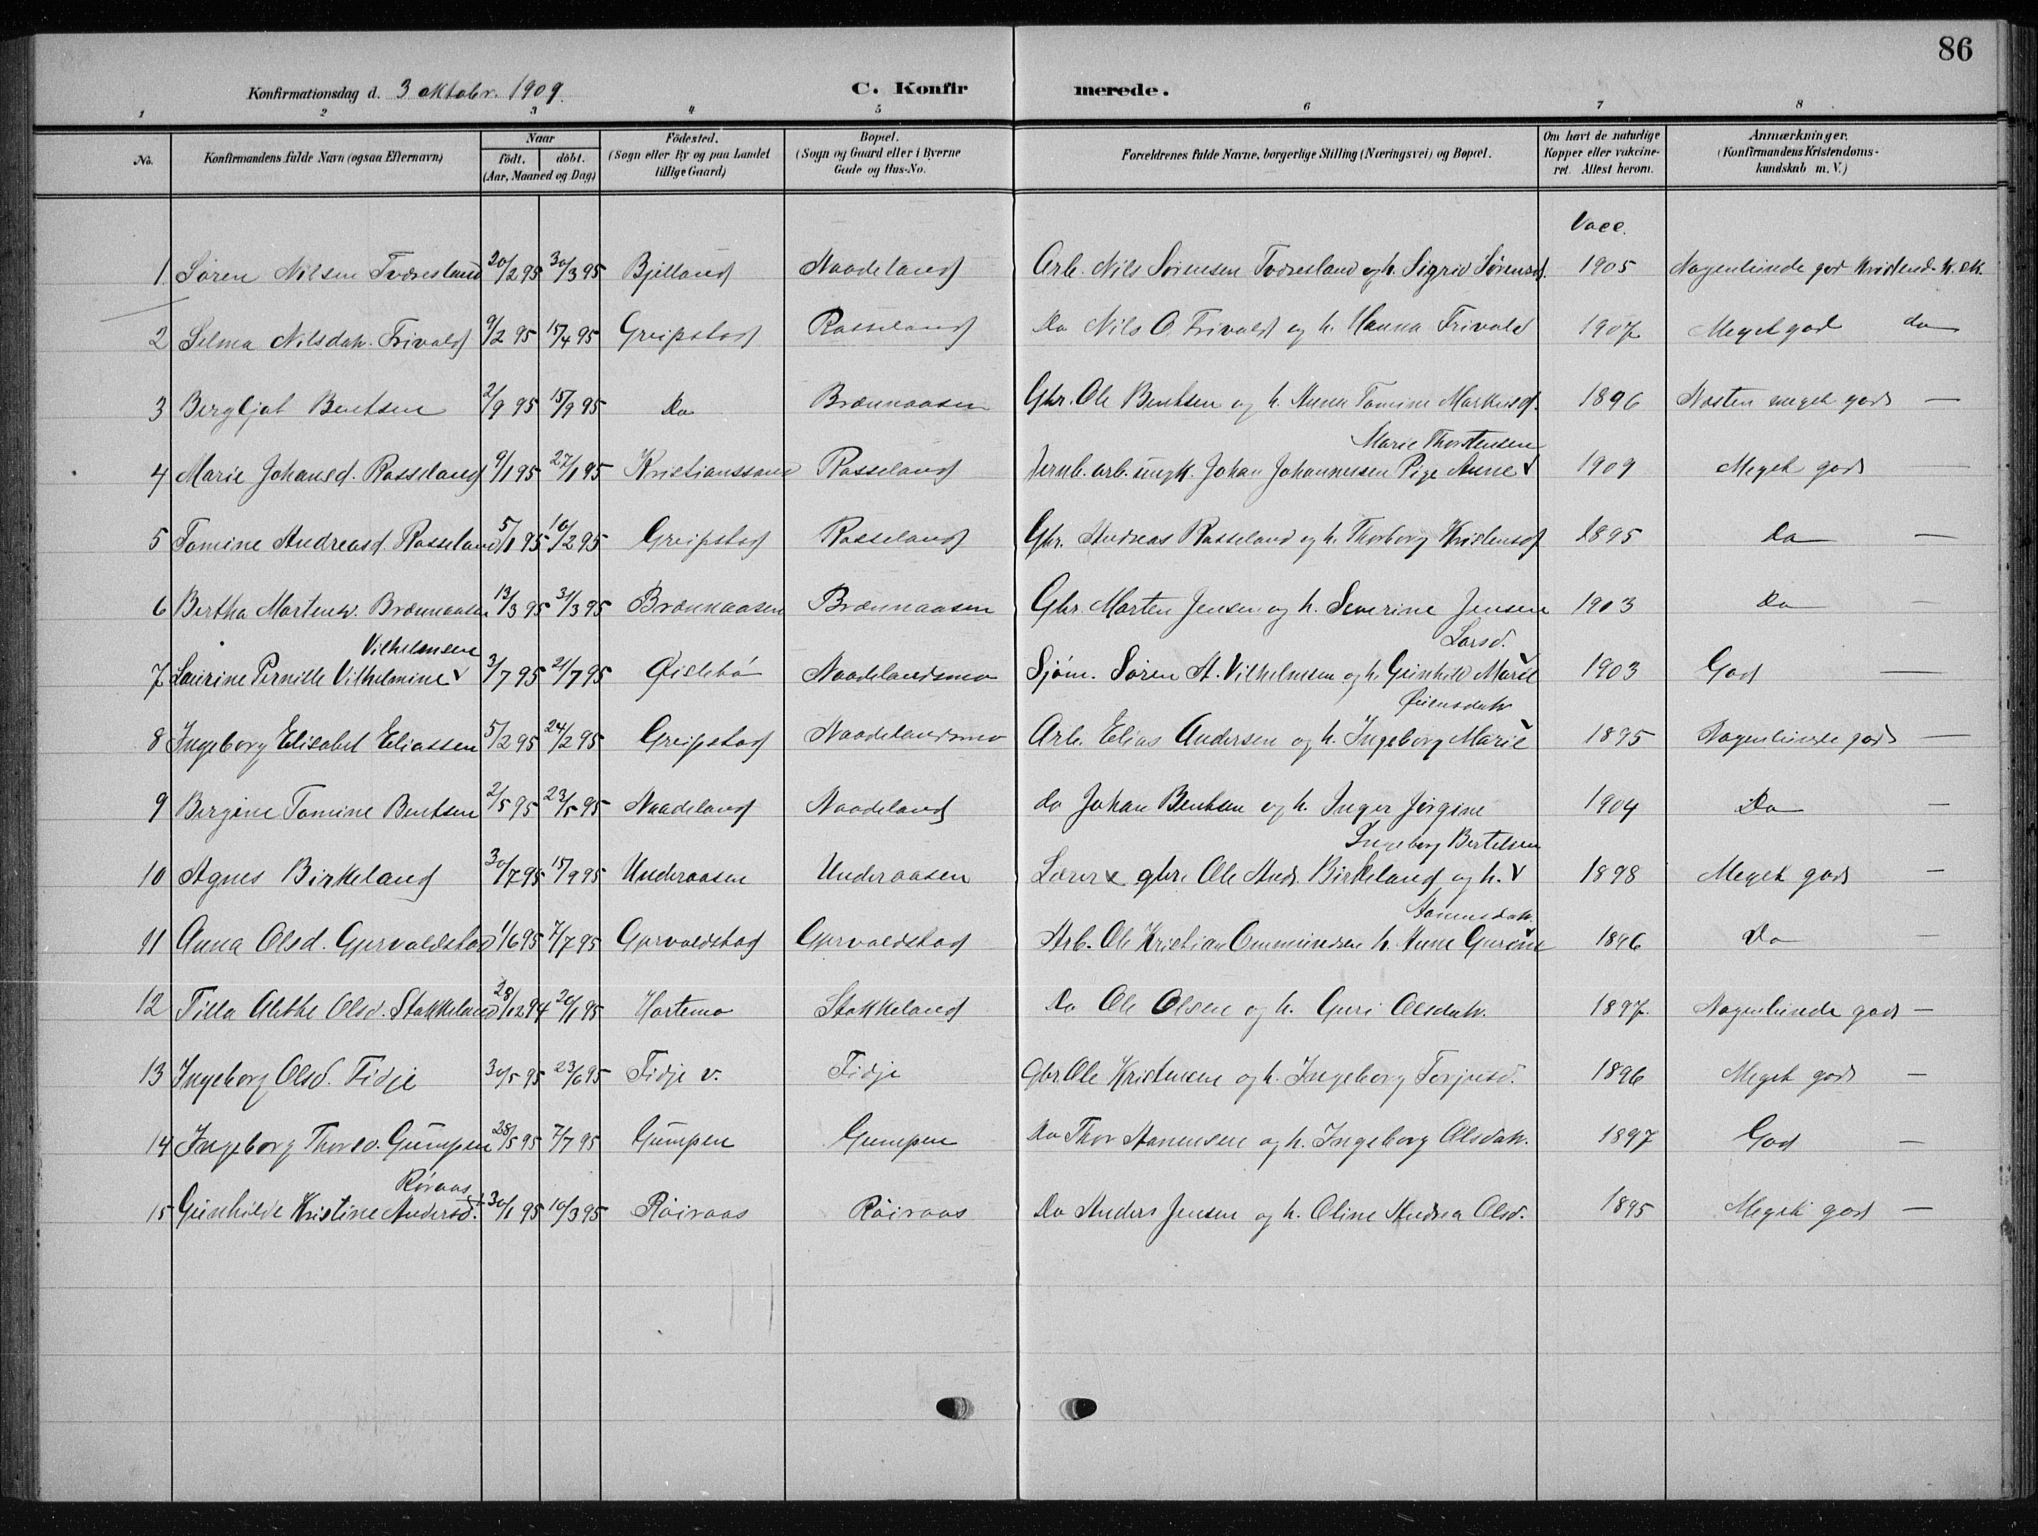 86
Konfirmationsdag d. 3 oktobr. 1909. C. Konfirmerede.
1 2 3 4 5 6 7 8
No. Konfirmandens fulde Navn (ogsaa Efternavn) Naar født. døbt. (Aar, Maaned og Dag) Fødested. (Sogn eller By og paa Landet tillige Gaard) Bopæl. (Sogn og Gaard eller i Byerne Gade og Hus-No. Forældrenes fulde Navne, borgerlige Stilling (Næringsvei) og Bopæl. Om havt de naturlige Kopper eller vakcineret. Attest herom. Anmærkninger. (Konfirmandens Kristendomskundskab m. V.)
Vacc.
1 Søren Nilsen Tveresland 20/2 95 30/3 95 Bjelland Naadeland Arb. Nils Sørensen Tveresland og h. Sigrid Sørensd. 1905 Nogenlunde god Kristend. k. sk.
2 Selma Nilsdatr. Frivold 9/2 95 15/4 95 Greipstad Rosseland Do Nils O. Frivold og h. Hanna Frivold 1907 Meget god do
3 Bergljot Bentsen 2/9 95 15/9 95 Do Brænnaasen Gbr. Ole Bentsen og h. Anna Tomine Markusd. 1896 Næsten meget god —
4 Marie Johansd. Rosseland 9/1 95 27/1 95 Kristianssand Rosseland Jernb. arb. ungk. Johan Johannesen Pige Anne Marie Thorstensen 1909 Meget god —
5 Tomine Andreasd. Rosseland 5/1 95 10/2 95 Greipstad Rosseland Gbr. Andreas Rosseland og h. Thorborg Kristensd. 1895 Do —
6 Bertha Martensd. Brænnaasen 13/3 95 31/3 95 Brænnaasen Brænnaasen Gbr. Morten Jensen og h. Severine Jensen 1903 Do —
7 Laurine Pernille Vilhelmine Vilhelmsen 3/7 95 21/7 95 Øislebø Naadelandsmo Sjøm. Søren A. Vilhelmsen og h. Gunhild Marie Larsd. 1903 God —
8 Ingeborg Elisabet Eliassen 5/2 95 24/2 95 Greipstad Naadelandsmo Arb. Elias Andersen og h. Ingeborg Marie Øiensdatr 1895 Nogenlunde god —
9 Bergine Tomine Bentsen 2/5 95 23/5 95 Naadeland Naadeland do Johan Bentsen og h. Inger Jørgine 1904 Do —
10 Agnes Birkeland 30/7 95 15/9 95 Underaasen Underaasen Lærer x gbr. Ole Ands. Birkeland og h. Ingeborg Bertelsen 1898 Meget god —
11 Anna Olsd. Gjervoldstad 1/6 95 7/7 95 Gjervoldstad Gjervoldstad Arb. Ole Kristian Ommundsen h. Anne Gurine Aanensdatr. 1896 Do —
12 Tilla Alethe Olsd. Stokkeland 28/12 94 20/1 95 Hortemo Stokkeland Do Ole Olsen og h. Guri Olsdatr. 1897 Nogenlunde god —
13 Ingeborg Olsd. Fidje 30/5 95 23/6 95 Fidje v. Fidje Gbr. Ole Kristensen og h. Ingeborg Torjusd. 1896 Meget god —
14 Ingeborg Thorsd. Gumpen 28/5 95 7/7 95 Gumpen Gumpen Do Thor Aanensen og h. Ingeborg Olsdatr. 1897 God —
15 Gunhilde Kristine Andersd. Røiraas 30/1 95 10/3 95 Røiraas Røiraas Do Anders Jensen og h. Oline Andrea Olsd. 1895 Meget god —